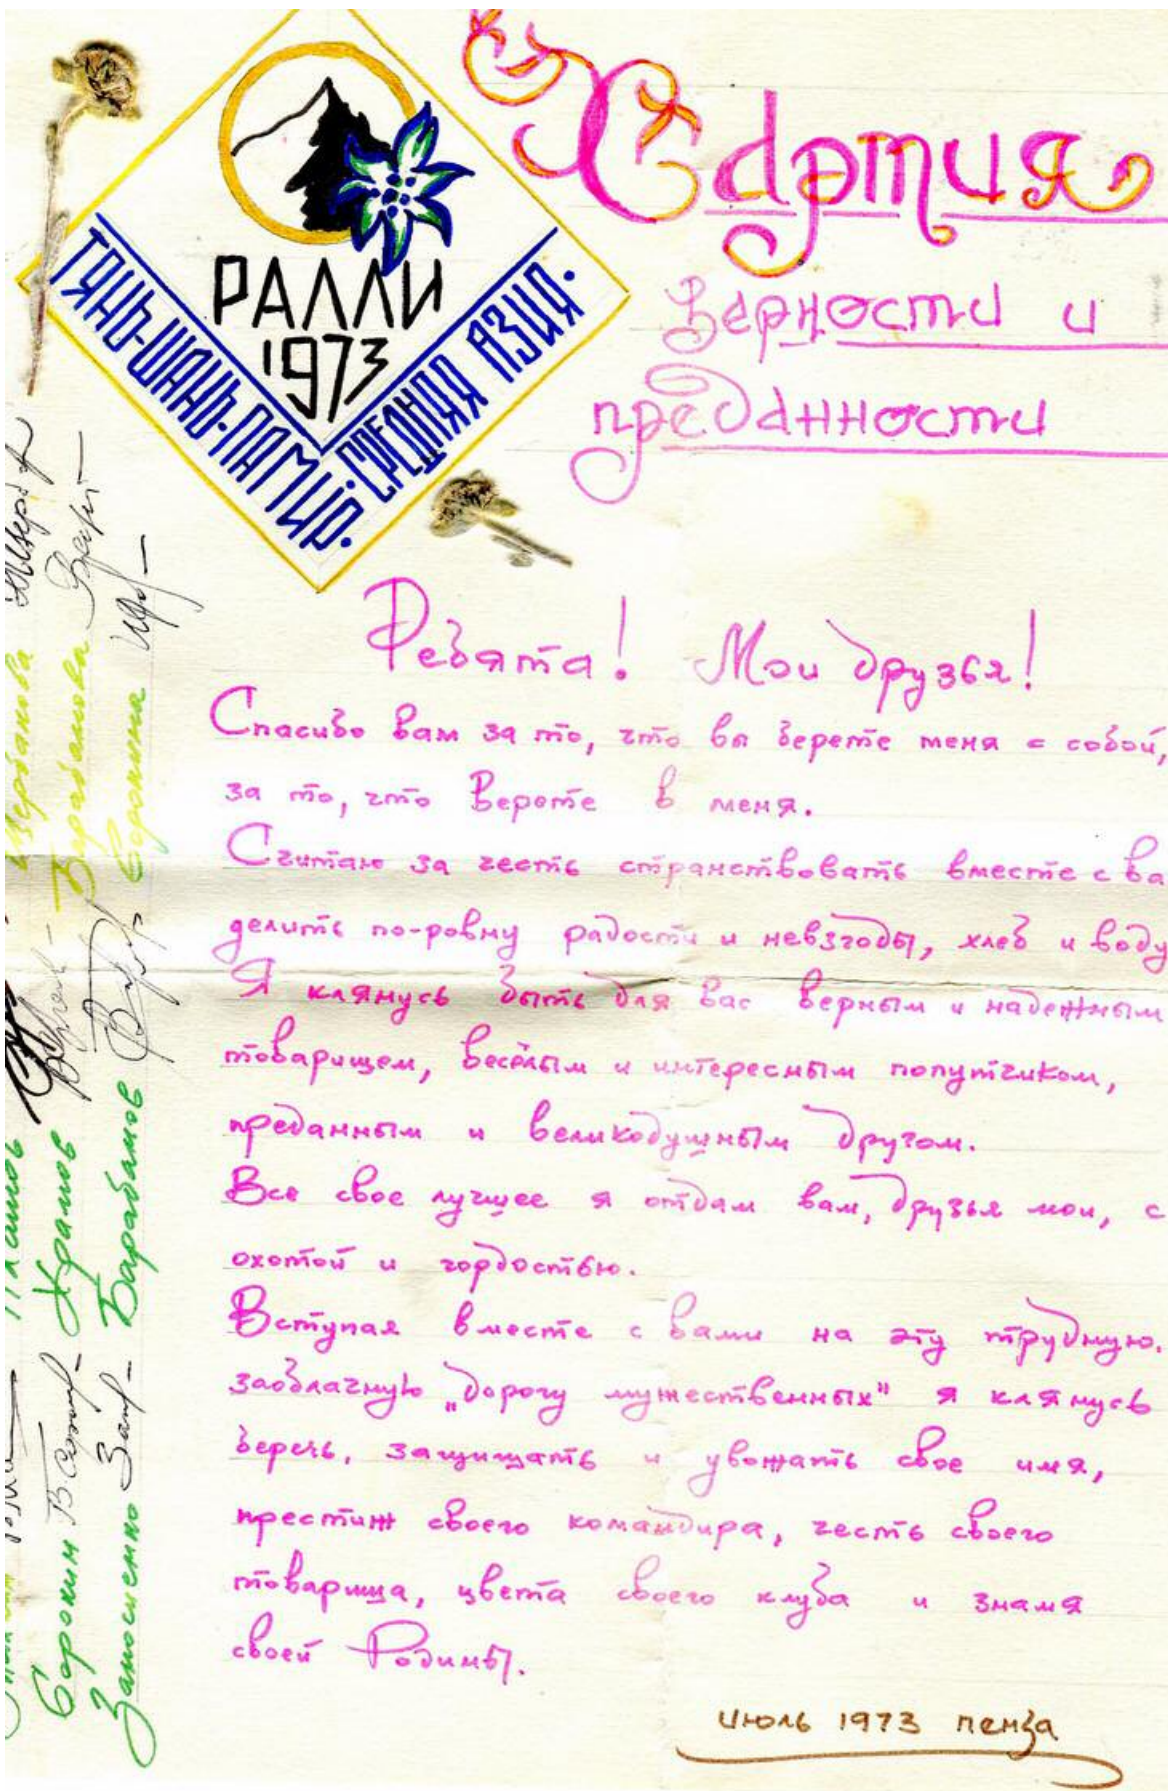 Хартия
верности и
преданности
РАЛЛИ
1973
ТЯНЬ-ШАНЬ-ПАМИР.
СРЕДНЯЯ АЗИЯ.
Ребята! Мои друзья!
Спасибо вам за то, что вы берете меня с собой,
за то, что верете в меня.
Считаю за честь странствовать вместе с ва
делить по-ровну радости и невзгоды, хлеб и воду
Я клянусь быть для вас верным и надежным
товарищем, весёлым и интересным попутчиком,
преданным и великодушным другом.
Все свое лучшее я отдам вам, друзья мои, с
охотой и гордостью.
Вступая вместе с вами на эту трудную.
заоблачную „дорогу мужественных" я клянусь
беречь, защищать и уважать свое имя,
престиж своего командира, честь своего
товарища, цвета своего клуба и знамя
своей Родины.
июль 1973 пенза
Сорокин
Храмов
Барабанова
Барабанов
Сорокина